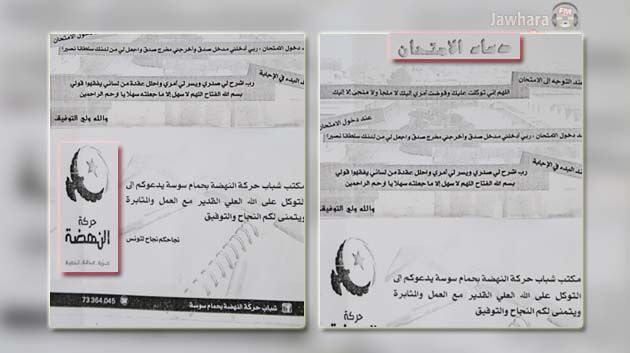 Jawhara FM
دخول الامتحان
دخول الامتحان ، ربي أدخلني مدخل صدق وأخرجني مخرج صدق واجعل لي من لدنك سلطانا نصيرا
البدء في الإجابة
رب اشرح لي صدري ويسر لي أمري واحلل عقدة من لساني يفقهوا قولي
بسم الله الفتاح اللهم لا سهل إلا ما جعلته سهلا يا ارحم الراحمين
والله ولي التوفيق
مكتب شباب حركة النهضة بحمام سوسة يدعوكم إلى
التوكل على الله العلي القدير مع العمل والمثابرة
ويتمنى لكم النجاح والتوفيق
نجاحكم نجاح لتونس
حركة
النهضة
شباب حركة النهضة بحمام سوسة
73 364 045
دعاء الامتحان
عند التوجه إلى الامتحان
اللهم إني توكلت عليك وفوضت أمري إليك لا ملجأ ولا منجى إلا إليك
عند دخول الامتحان
دخول الامتحان ، ربي أدخلني مدخل صدق وأخرجني مخرج صدق واجعل لي من لدنك سلطانا نصيرا
البدء في الإجابة
رب اشرح لي صدري ويسر لي أمري واحلل عقدة من لساني يفقهوا قولي
بسم الله الفتاح اللهم لا سهل إلا ما جعلته سهلا يا ارحم الراحمين
والله ولي التوفيق
مكتب شباب حركة النهضة بحمام سوسة يدعوكم إلى
التوكل على الله العلي القدير مع العمل والمثابرة
ويتمنى لكم النجاح والتوفيق
حركة
النهضة